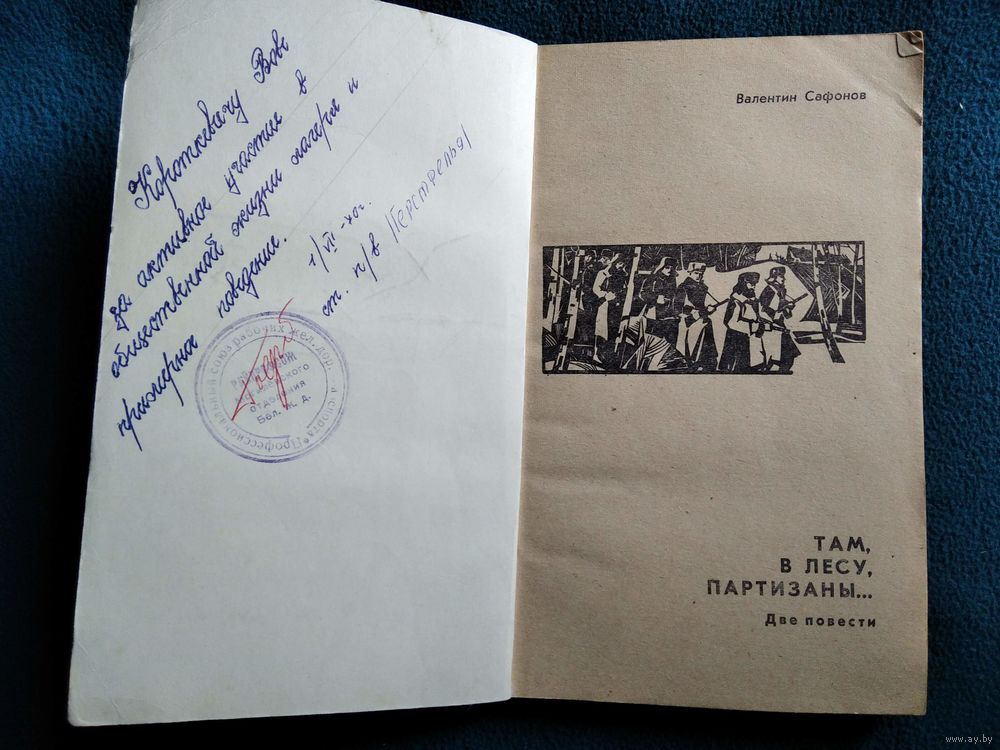 Короткевичу Вове
за активное участие в
общественной жизни лагеря и
примерное поведение.
1/VII-70г.
ст. п/в /Герстрельд/
Профессиональный союз рабочих жел. дор. и спорта
отделения
Бел. ж. д.
Валентин Сафонов
ТАМ,
В ЛЕСУ,
ПАРТИЗАНЫ...
Две повести
www.ay.by